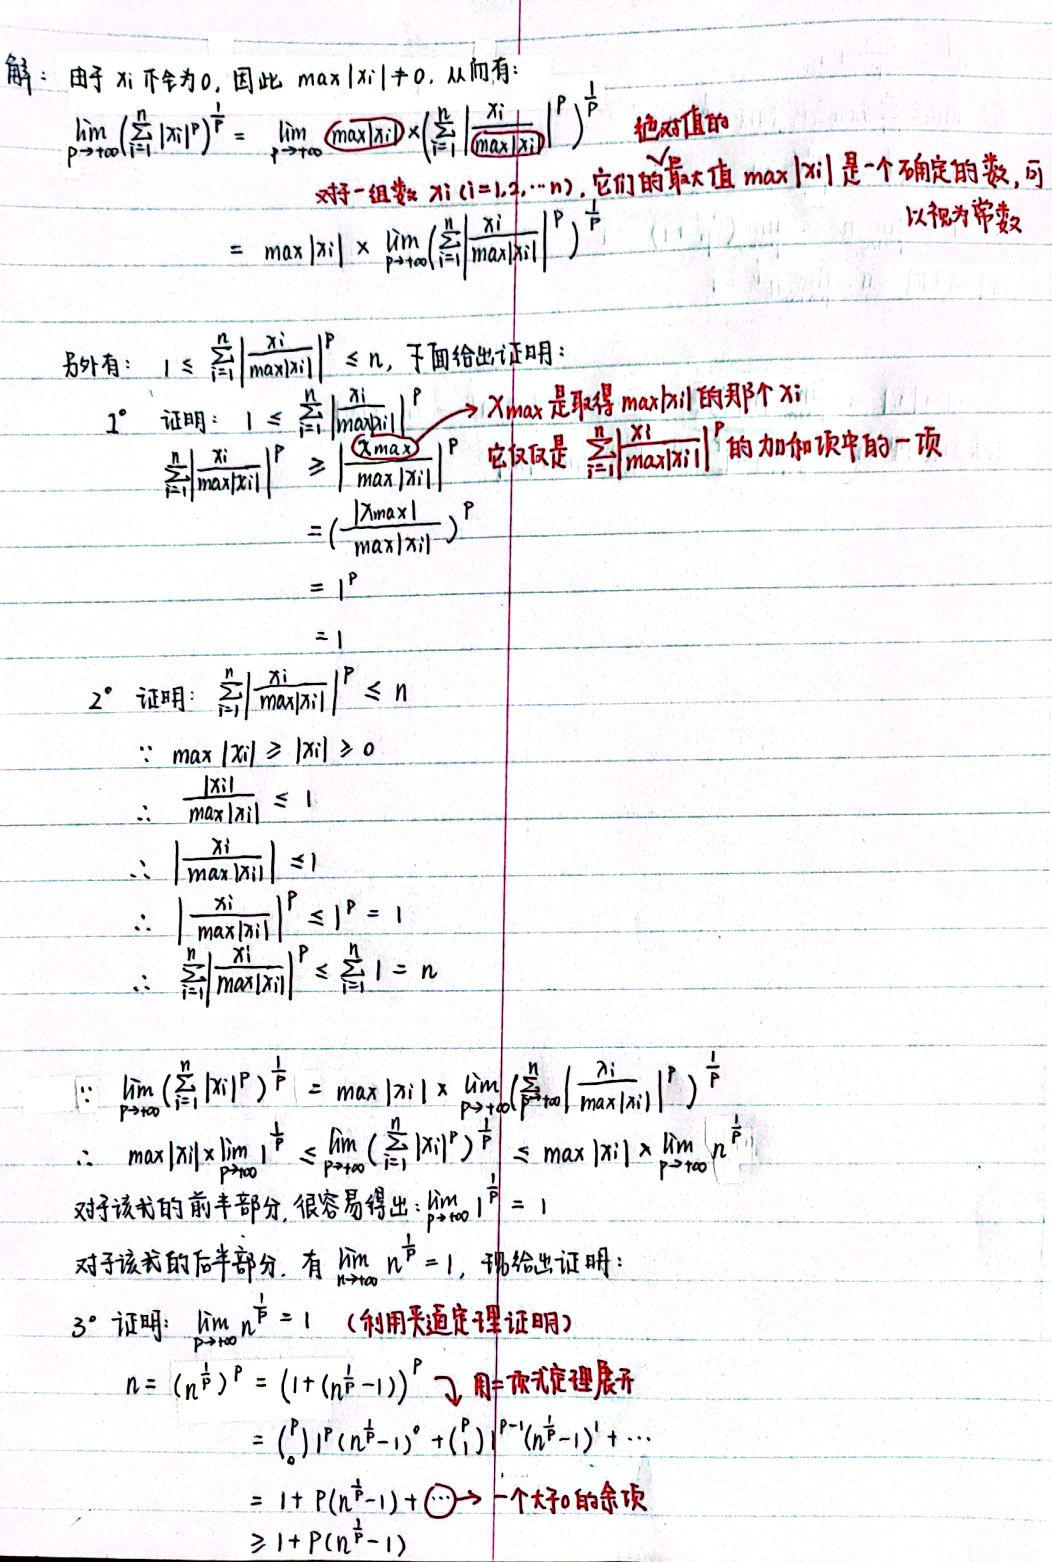 解: 由于 xi 不全为0, 因此 max|xi| ≠ 0. 从而有:
lim_{p→+∞} (∑_{i=1}^{n} |xi|^p)^{1/p} = lim_{p→+∞} max|xi| × (∑_{i=1}^{n} |xi/max|xi||^p)^{1/p}
绝对值的
对于一组数 xi (i=1,2,…n), 它们的最大值 max|xi| 是一个确定的数, 可
以视为常数
= max|xi| × lim_{p→+∞} (∑_{i=1}^{n} |xi/max|xi||^p)^{1/p}
另外有: 1 ≤ ∑_{i=1}^{n} |xi/max|xi||^p ≤ n, 下面给出证明:
1° 证明: 1 ≤ ∑_{i=1}^{n} |xi/max|xi||^p
Xmax 是取得 max|xi| 的那个 xi
它仅仅是 ∑_{i=1}^{n} |xi/max|xi||^p 的加和项中的一项
∑_{i=1}^{n} |xi/max|xi||^p ≥ |xmax/max|xi||^p
= (|xmax|/max|xi|)^p
= 1^p
= 1
2° 证明: ∑_{i=1}^{n} |xi/max|xi||^p ≤ n
∵ max|xi| ≥ |xi| ≥ 0
∴ |xi|/max|xi| ≤ 1
∴ |xi/max|xi|| ≤ 1
∴ |xi/max|xi||^p ≤ 1^p = 1
∴ ∑_{i=1}^{n} |xi/max|xi||^p ≤ ∑_{i=1}^{n} 1 = n
∵ lim_{p→+∞} (∑_{i=1}^{n} |xi|^p)^{1/p} = max|xi| × lim_{p→+∞} (∑_{p→+∞}^{n} |xi/max|xi||^p)^{1/p}
∴ max|xi| × lim_{p→+∞} 1^{1/p} ≤ lim_{p→+∞} (∑_{i=1}^{n} |xi|^p)^{1/p} ≤ max|xi| × lim_{p→+∞} n^{1/p}
对于该式的前半部分, 很容易得出: lim_{p→+∞} 1^{1/p} = 1
对于该式的后半部分. 有 lim_{n→+∞} n^{1/p} = 1, 现给出证明:
3° 证明: lim_{p→+∞} n^{1/p} = 1 (利用夹逼定理证明)
n = (n^{1/p})^p = (1+(n^{1/p}-1))^p 用二项式定理展开
= (p 0) 1^p (n^{1/p}-1)^0 + (p 1) 1^{p-1} (n^{1/p}-1)^1 + …
= 1 + P(n^{1/p}-1) + … → 一个大于0的余项
≥ 1 + P(n^{1/p}-1)